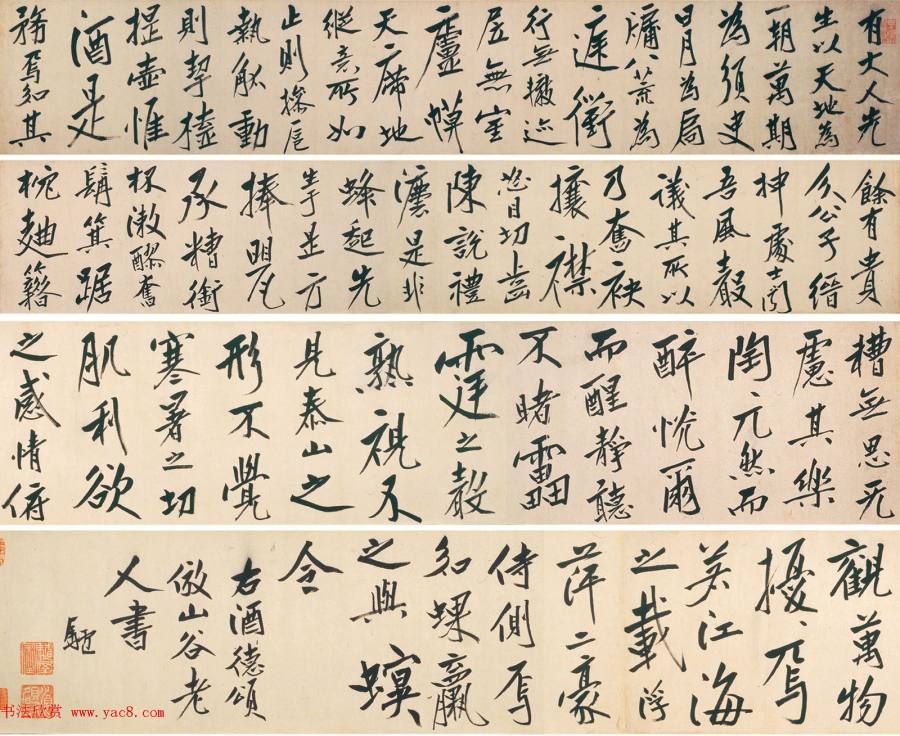 有大人先
生以天地為
一朝萬期
為須臾
日月為扃
牖八荒為
庭衢
行無轍迹
居無室
廬幙
天席地
縱意所如
止則操卮
執觚動
則挈榼
提壺惟
酒是
務焉知其
餘有貴
介公子縉
紳處士聞
吾風聲
議其所以
乃奮袂
攘襟
怒目切齒
陳說禮
灋是非
蜂起先
生于是方
捧甖
承糟銜
杯漱醪奮
髯箕踞
枕麯籍
糟無思无
慮其樂
陶〻兀然而
醉怳爾
而醒靜聽
不睹靁
霆之聲
熟視不
見泰山之
形不覺
寒暑之切
肌利欲
之感情俯
觀萬物
擾〻焉
若江海
之載浮
萍二豪
侍側焉
知蜾蠃
之與螟
令
右酒德頌
倣山谷老
人書
书法欣赏 www.yac8.com